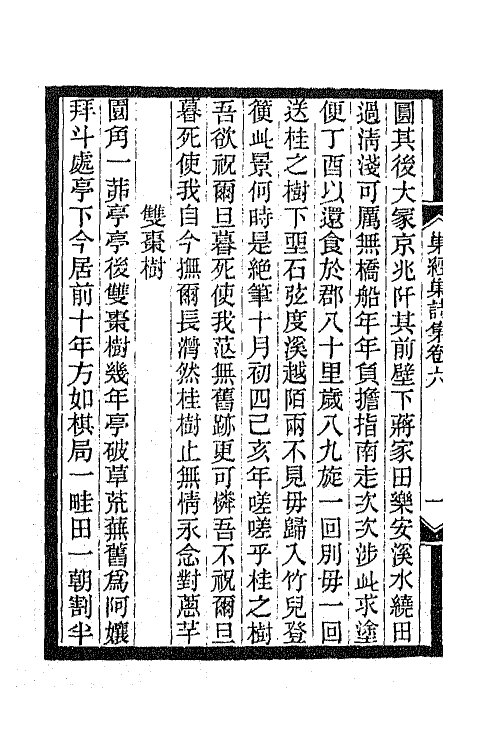 巢經巢詩集卷六
一
圓其後大冢京兆阡其前壁下蔣家田樂安溪水繞田
過淸淺可厲無橋船年年負擔指南走次次涉此求塗
便丁酉以還食於郡八十里歲八九旋一回別毋一回
送桂之樹下堊石弦度溪越陌兩不見毋歸入竹兒登
篢此景何時是絶筆十月初四己亥年嗟嗟乎桂之樹
吾欲祝爾旦暮死使我范無舊跡更可憐吾不祝爾旦
暮死使我自今撫爾長潸然桂樹止無情永念對蔥芊
雙棗樹
園角一茆亭亭後雙棗樹幾年亭破草荒蕪舊爲阿孃
拜斗處亭下今居前十年方如棋局一畦田一朝割半